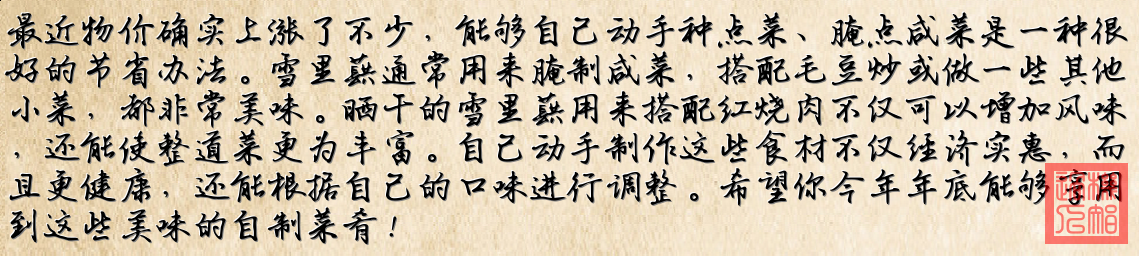 最近物价确实上涨了不少，能够自己动手种点菜、腌点咸菜是一种很
好的节省办法。雪里蕻通常用来腌制咸菜，搭配毛豆炒或做一些其他
小菜，都非常美味。晒干的雪里蕻用来搭配红烧肉不仅可以增加风味
，还能使整道菜更为丰富。自己动手制作这些食材不仅经济实惠，而
且更健康，还能根据自己的口味进行调整。希望你今年年底能够享用
到这些美味的自制菜肴！